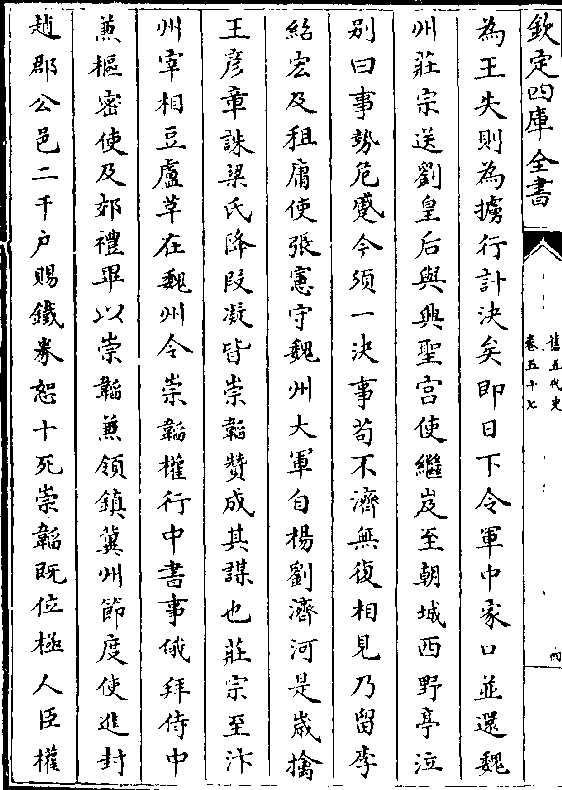 欽定四庫全書
舊五代史
卷五十七
四
為王失則為擄行計決矣即日下令軍中家口並還魏
州莊宗送劉皇后與興聖宫使繼岌至朝城西野亭泣
别曰事勢危蹙今須一決事苟不濟無復相見乃留李
紹宏及租庸使張憲守魏州大軍自楊劉濟河是嵗擒
王彦章誅梁氏降段凝皆崇韜贊成其謀也莊宗至汴
州宰相豆盧革在魏州令崇韜權行中書事俄拜侍中
兼樞密使及郊禮畢以崇韜兼領鎮冀州節度使進封
趙郡公邑二千户賜鐵券恕十死崇韜既位極人臣權